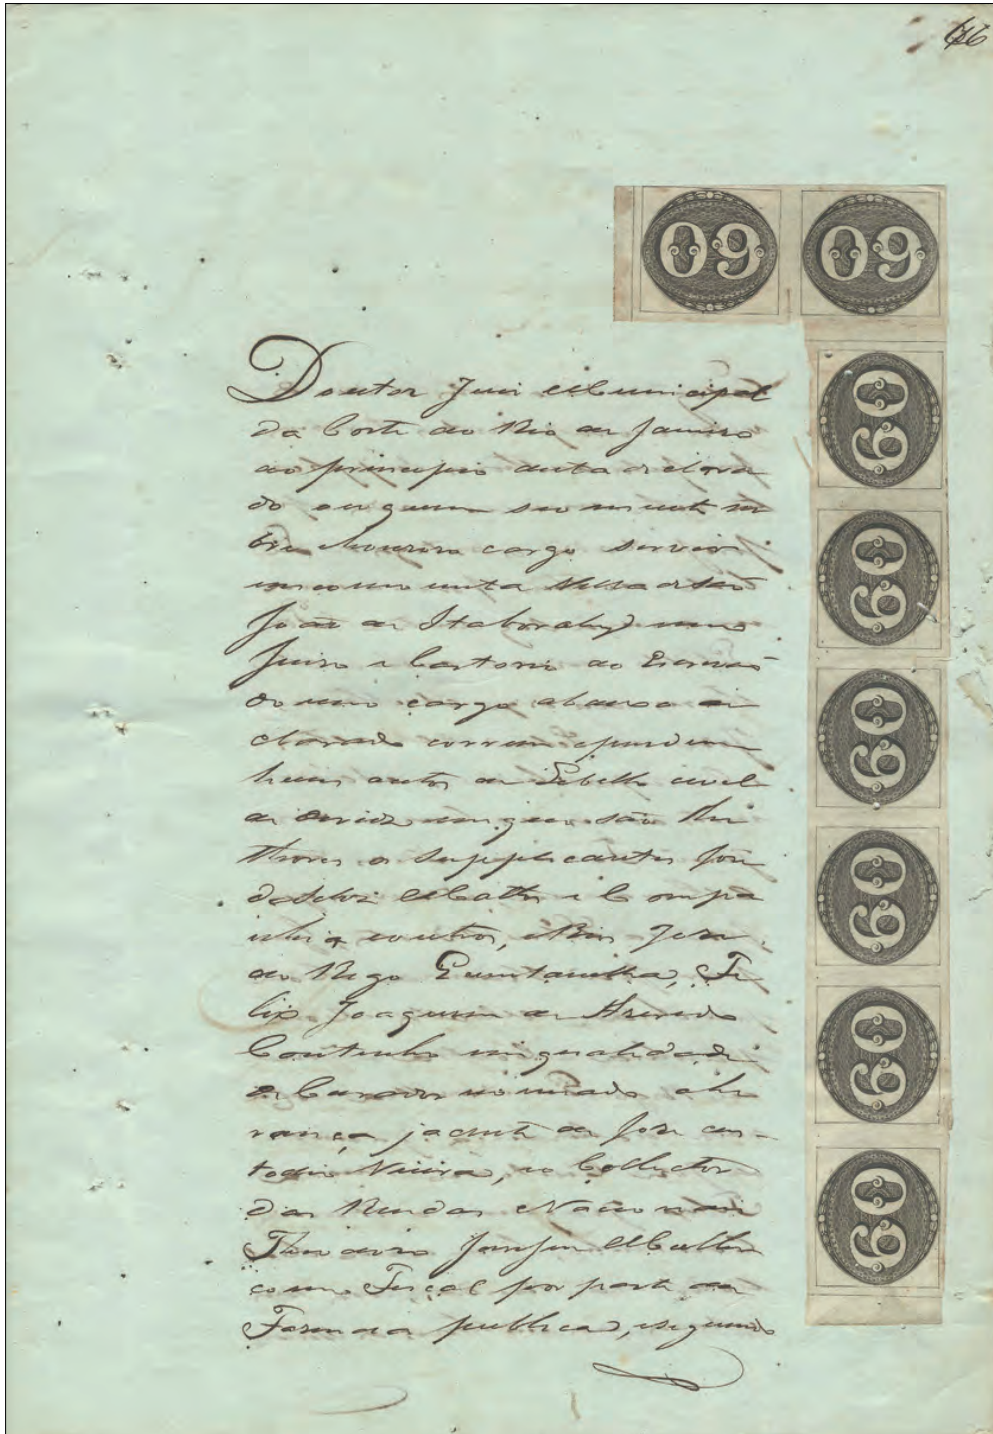 66
60 60
60
60
60
60
60
60
Doutor Juiz Municipal
da Corte do Rio de Janeiro
ao principio desta declara
do e a quem seu
cargo servir
nesta Villa de São
João de Itaborahy meu
Juizo e Cartorio do Escrivão
do meu cargo abaixo de
clarado correm e pendem
huns autos de Libello civel
em que são Au
thores os supplicantes José
da Silva Mattos e Compa
nhia e outros, e Reos José
do Rego Quintanilha, Fe
lix Joaquim de Azeredo
Coutinho na qualidade
de Curador nomeado a he
rança jacente de José Cus-
todio Vieira, e o Collector
das Rendas Nacionais
Mattos
como Fiscal por parte da
Fazenda publica, e segundo